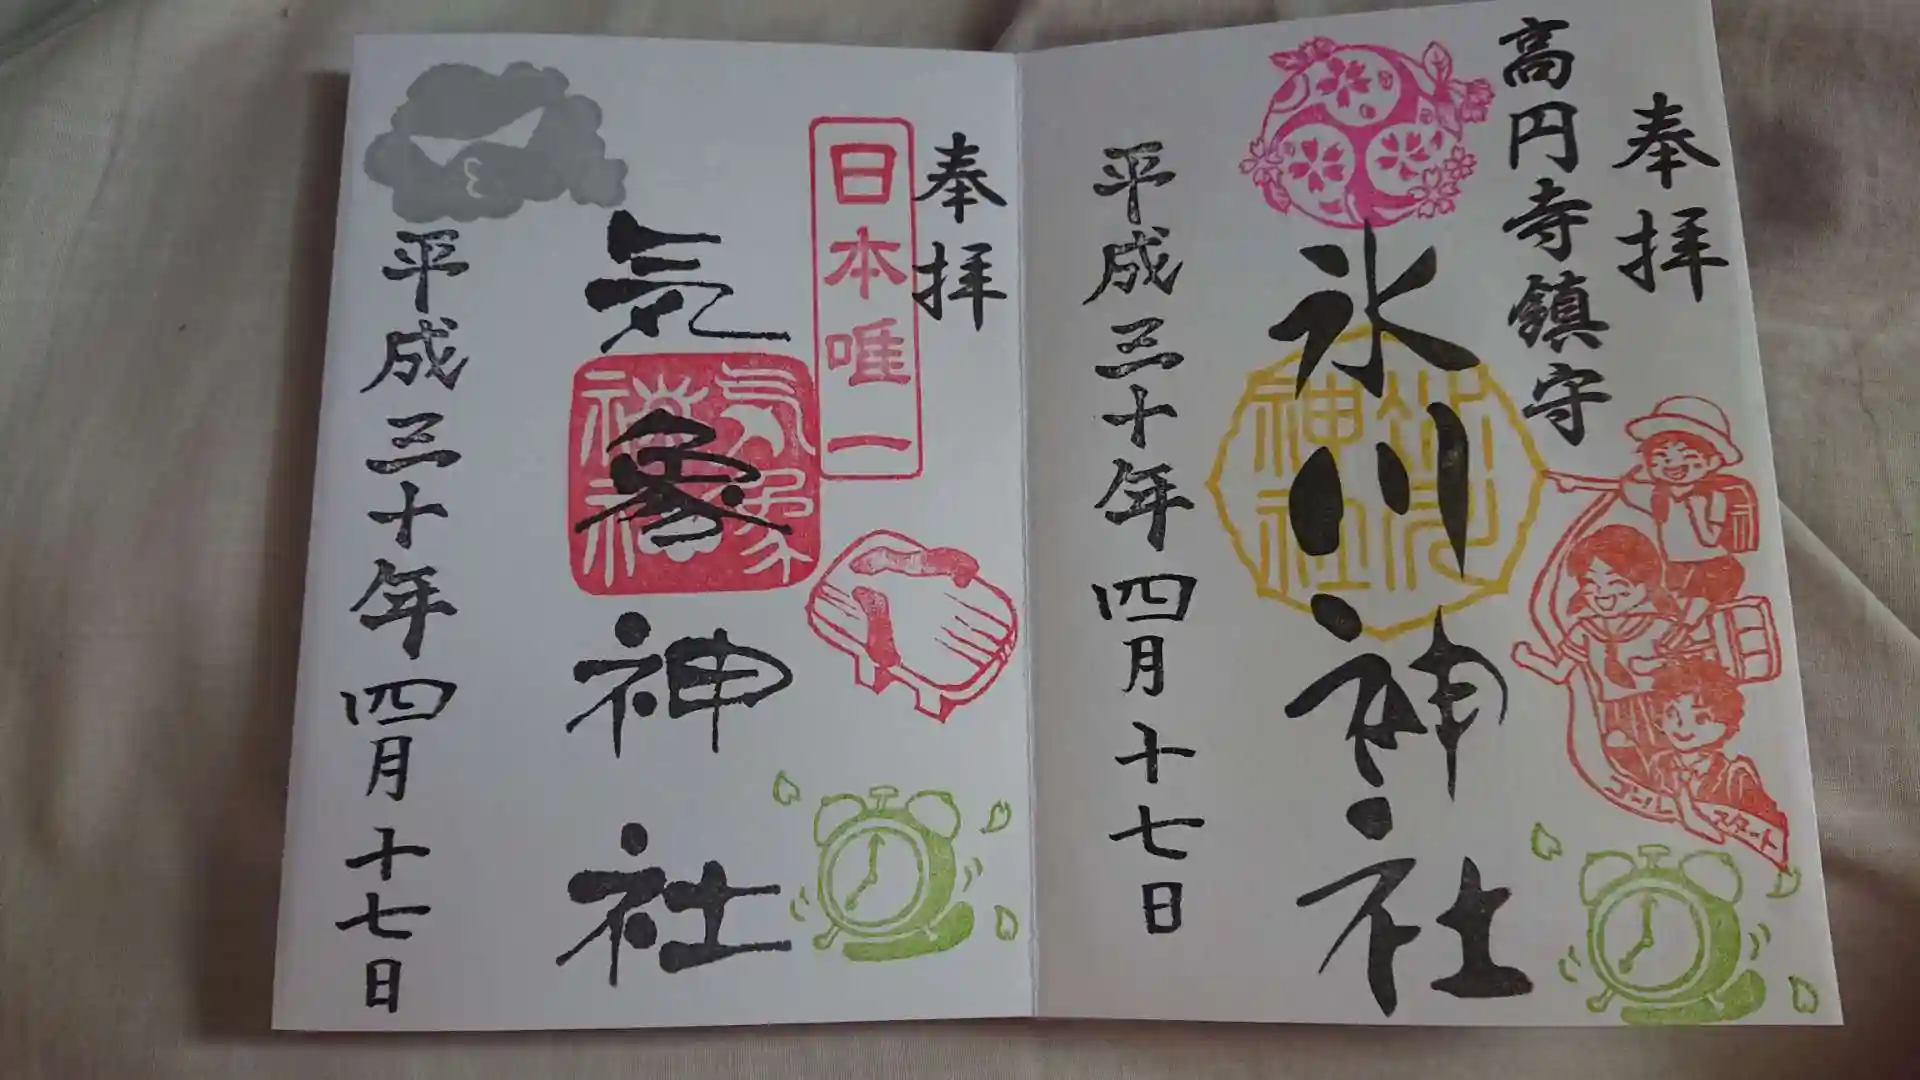 奉拝
高円寺鎮守
氷川神社
氷川
神社
平成三十年四月十七日
ゴール
スタート
奉拝
日本唯一
気象神社
気象
神社
平成三十年四月十七日